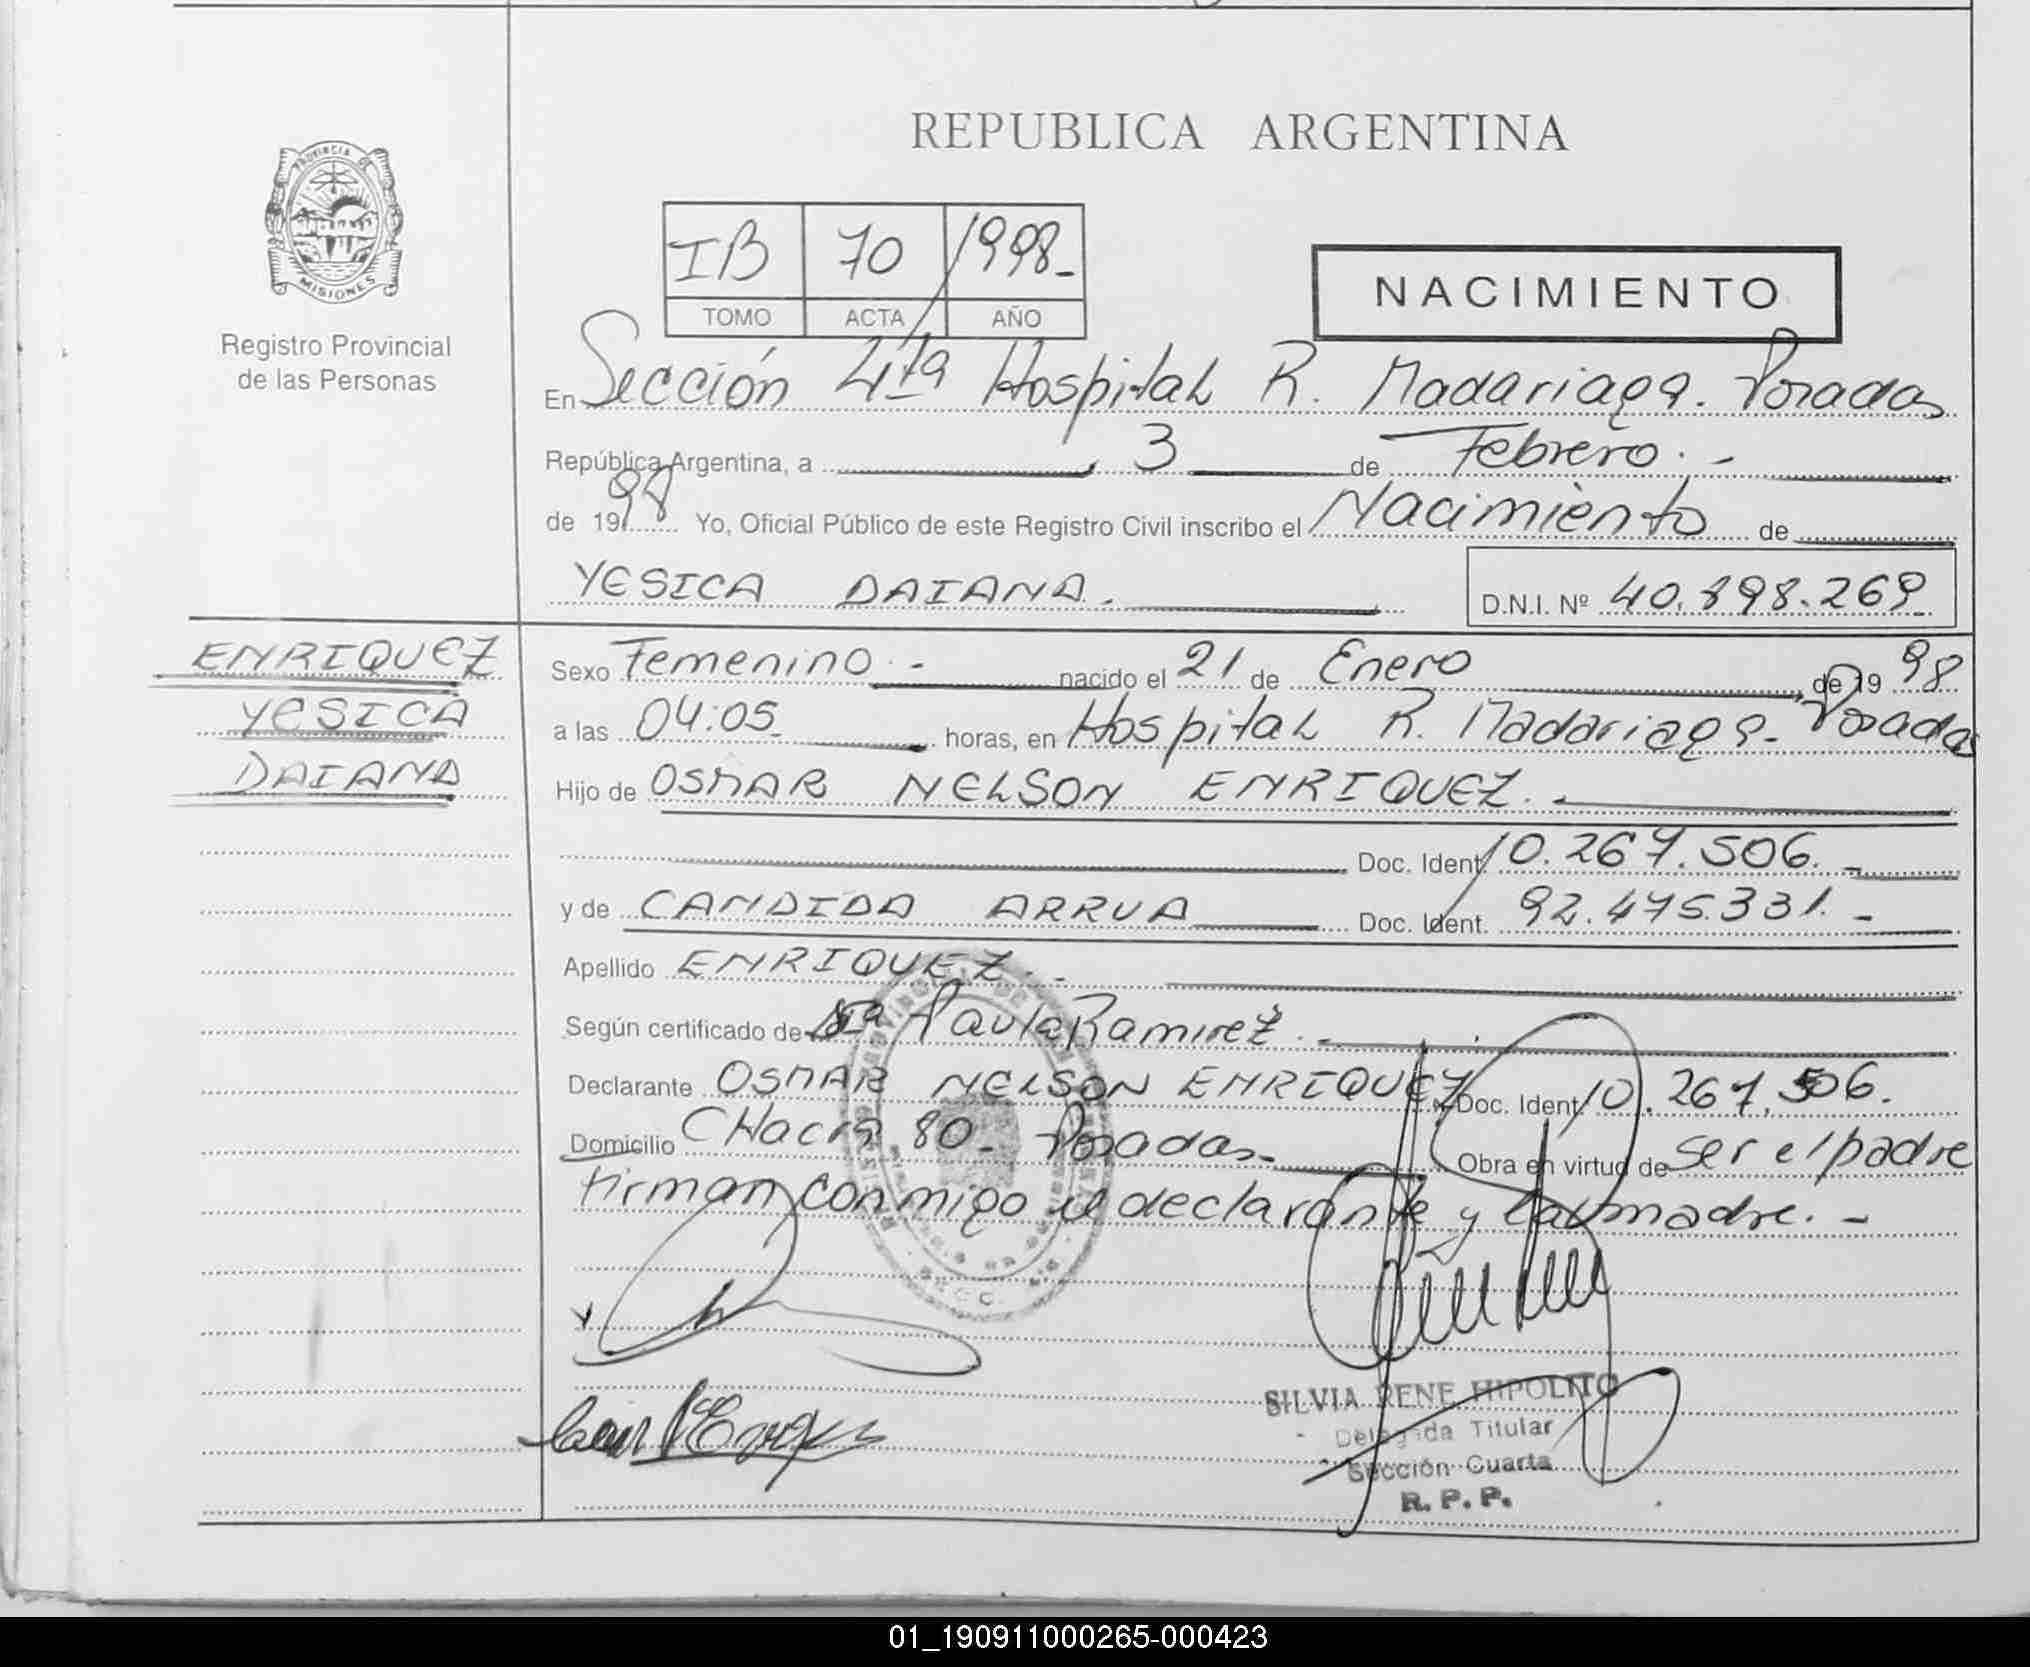 REPUBLICA ARGENTINA
PROVINCIA DE
MISIONES
Registro Provincial
de las Personas
IB 70 1998.-
TOMO ACTA AÑO
NACIMIENTO
En Sección 4ta Hospital R. Madariaga. Posadas
República Argentina, a 3 de Febrero.-
de 1998 Yo, Oficial Público de este Registro Civil inscribo el Nacimiento de
YESICA DAIANA.
D.N.I. Nº 40.898.269
ENRIQUEZ
YESICA
DAIANA
Sexo Femenino.- nacido el 21 de Enero de 19 98
a las 04:05 horas, en Hospital R. Madariaga. Posadas
Hijo de OSMAR NELSON ENRIQUEZ.-
Doc. Ident. 10.267.506.-
y de CANDIDA ARRUA Doc. Ident. 92.475.331.-
Apellido ENRIQUEZ.-
Según certificado de Paula Ramirez.-
Declarante OSMAR NELSON ENRIQUEZ Doc. Ident. 10.267.506.
Domicilio CHacra 80- Posadas.- Obra en virtud de ser el padre
firman conmigo el declarante y la madre.-
SILVIA RENE HIPOLITO
Delegada Titular
Sección Cuarta
R. P. P.
01_190911000265-000423